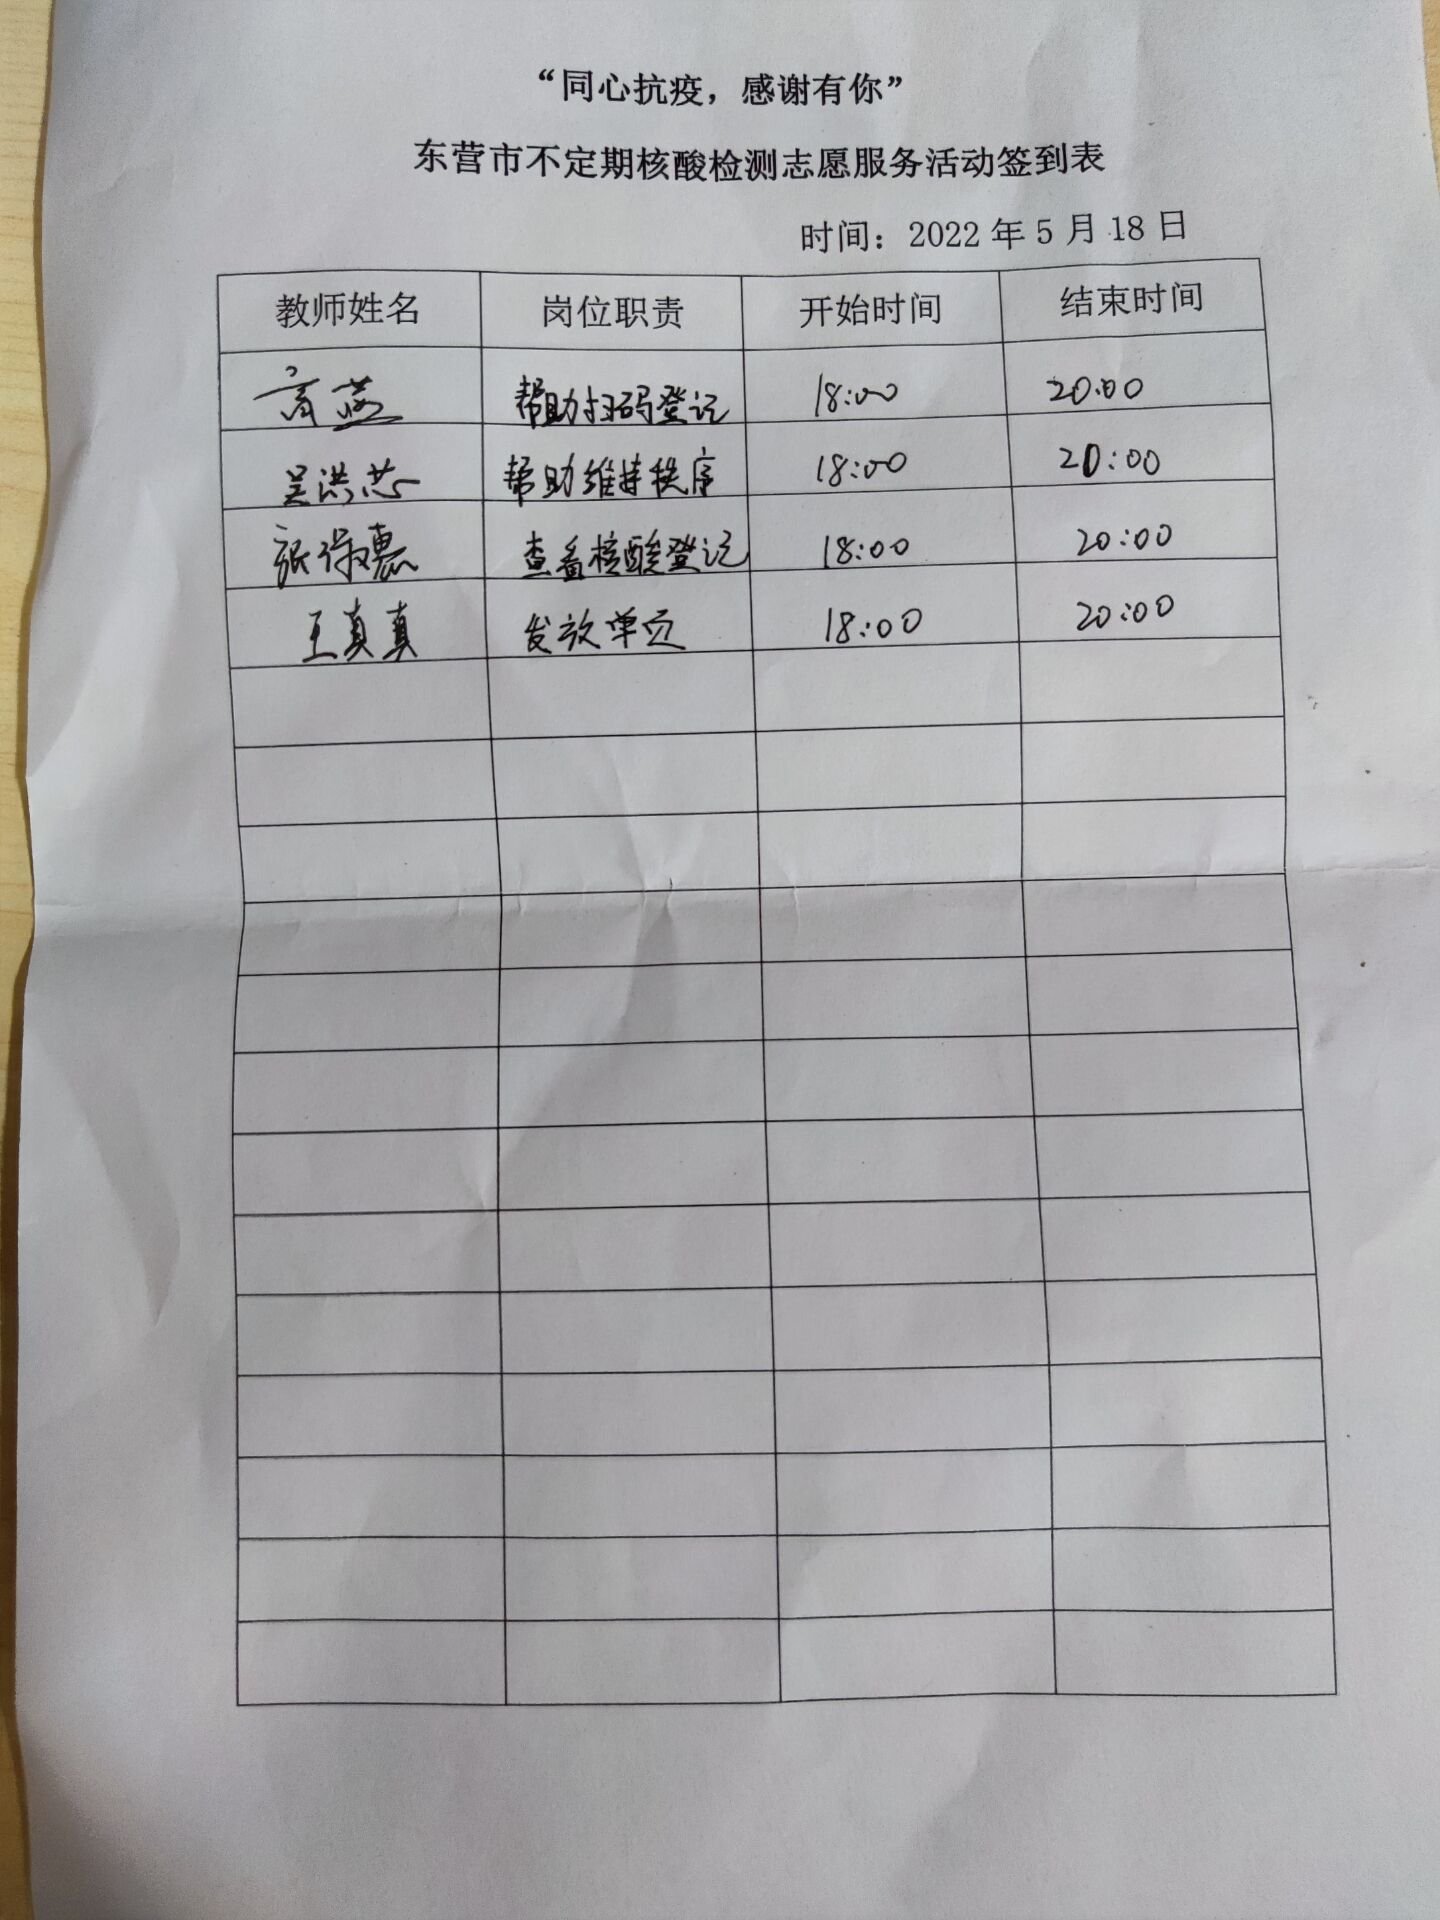 “同心抗疫，感谢有你”
东营市不定期核酸检测志愿服务活动签到表
时间：2022 年 5 月 18 日
教师姓名 岗位职责 开始时间 结束时间
高燕 帮助扫码登记 18:00 20:00
吴洪芯 帮助维持秩序 18:00 20:00
张保惠 查看核酸登记 18:00 20:00
王真真 发放单页 18:00 20:00